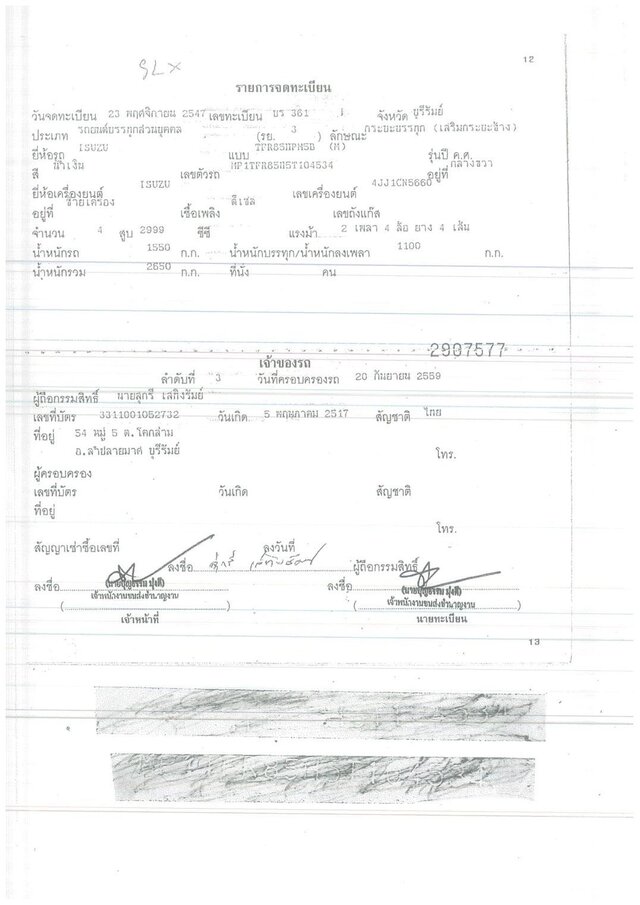 SLX
12
รายการจดทะเบียน
วันจดทะเบียน 23 พฤศจิกายน 2547 เลขทะเบียน บร 361 จังหวัด บุรีรัมย์
ประเภท รถยนต์บรรทุกส่วนบุคคล (รย. 3 ) ลักษณะ กระบะบรรทุก (เสริมกระบะข้าง)
ยี่ห้อรถ ISUZU แบบ TFR85HPM5B (M) รุ่นปี ค.ศ.
สี น้ำเงิน เลขตัวรถ MP1TFR85H5T104534 อยู่ที่ กลางขวา
ยี่ห้อเครื่องยนต์ ISUZU เลขเครื่องยนต์ 4JJ1CN5660
อยู่ที่ ซ้ายเครื่อง เชื้อเพลิง ดีเซล เลขถังแก๊ส
จำนวน 4 สูบ 2999 ซีซี แรงม้า 2 เพลา 4 ล้อ ยาง 4 เส้น
น้ำหนักรถ 1550 ก.ก. น้ำหนักบรรทุก/น้ำหนักลงเพลา 1100 ก.ก.
น้ำหนักรวม 2650 ก.ก. ที่นั่ง คน
2907577
เจ้าของรถ
ลำดับที่ 3 วันที่ครอบครองรถ 20 กันยายน 2559
ผู้ถือกรรมสิทธิ์ นายสุกรี เสกิงรัมย์
เลขที่บัตร 3311001052732 วันเกิด 5 พฤษภาคม 2517 สัญชาติ ไทย
ที่อยู่ 54 หมู่ 5 ต.โคกล่าม
อ.ลำปลายมาศ บุรีรัมย์ โทร.
ผู้ครอบครอง
เลขที่บัตร วันเกิด สัญชาติ
ที่อยู่
โทร.
สัญญาเช่าซื้อเลขที่ ลงวันที่
ลงชื่อ ผู้ถือกรรมสิทธิ์
ลงชื่อ (นายบุญธรรม มุ่งดี) ลงชื่อ (นายบุญธรรม มุ่งดี)
( เจ้าพนักงานขนส่งชำนาญงาน ) ( เจ้าพนักงานขนส่งชำนาญงาน )
เจ้าหน้าที่ นายทะเบียน
13